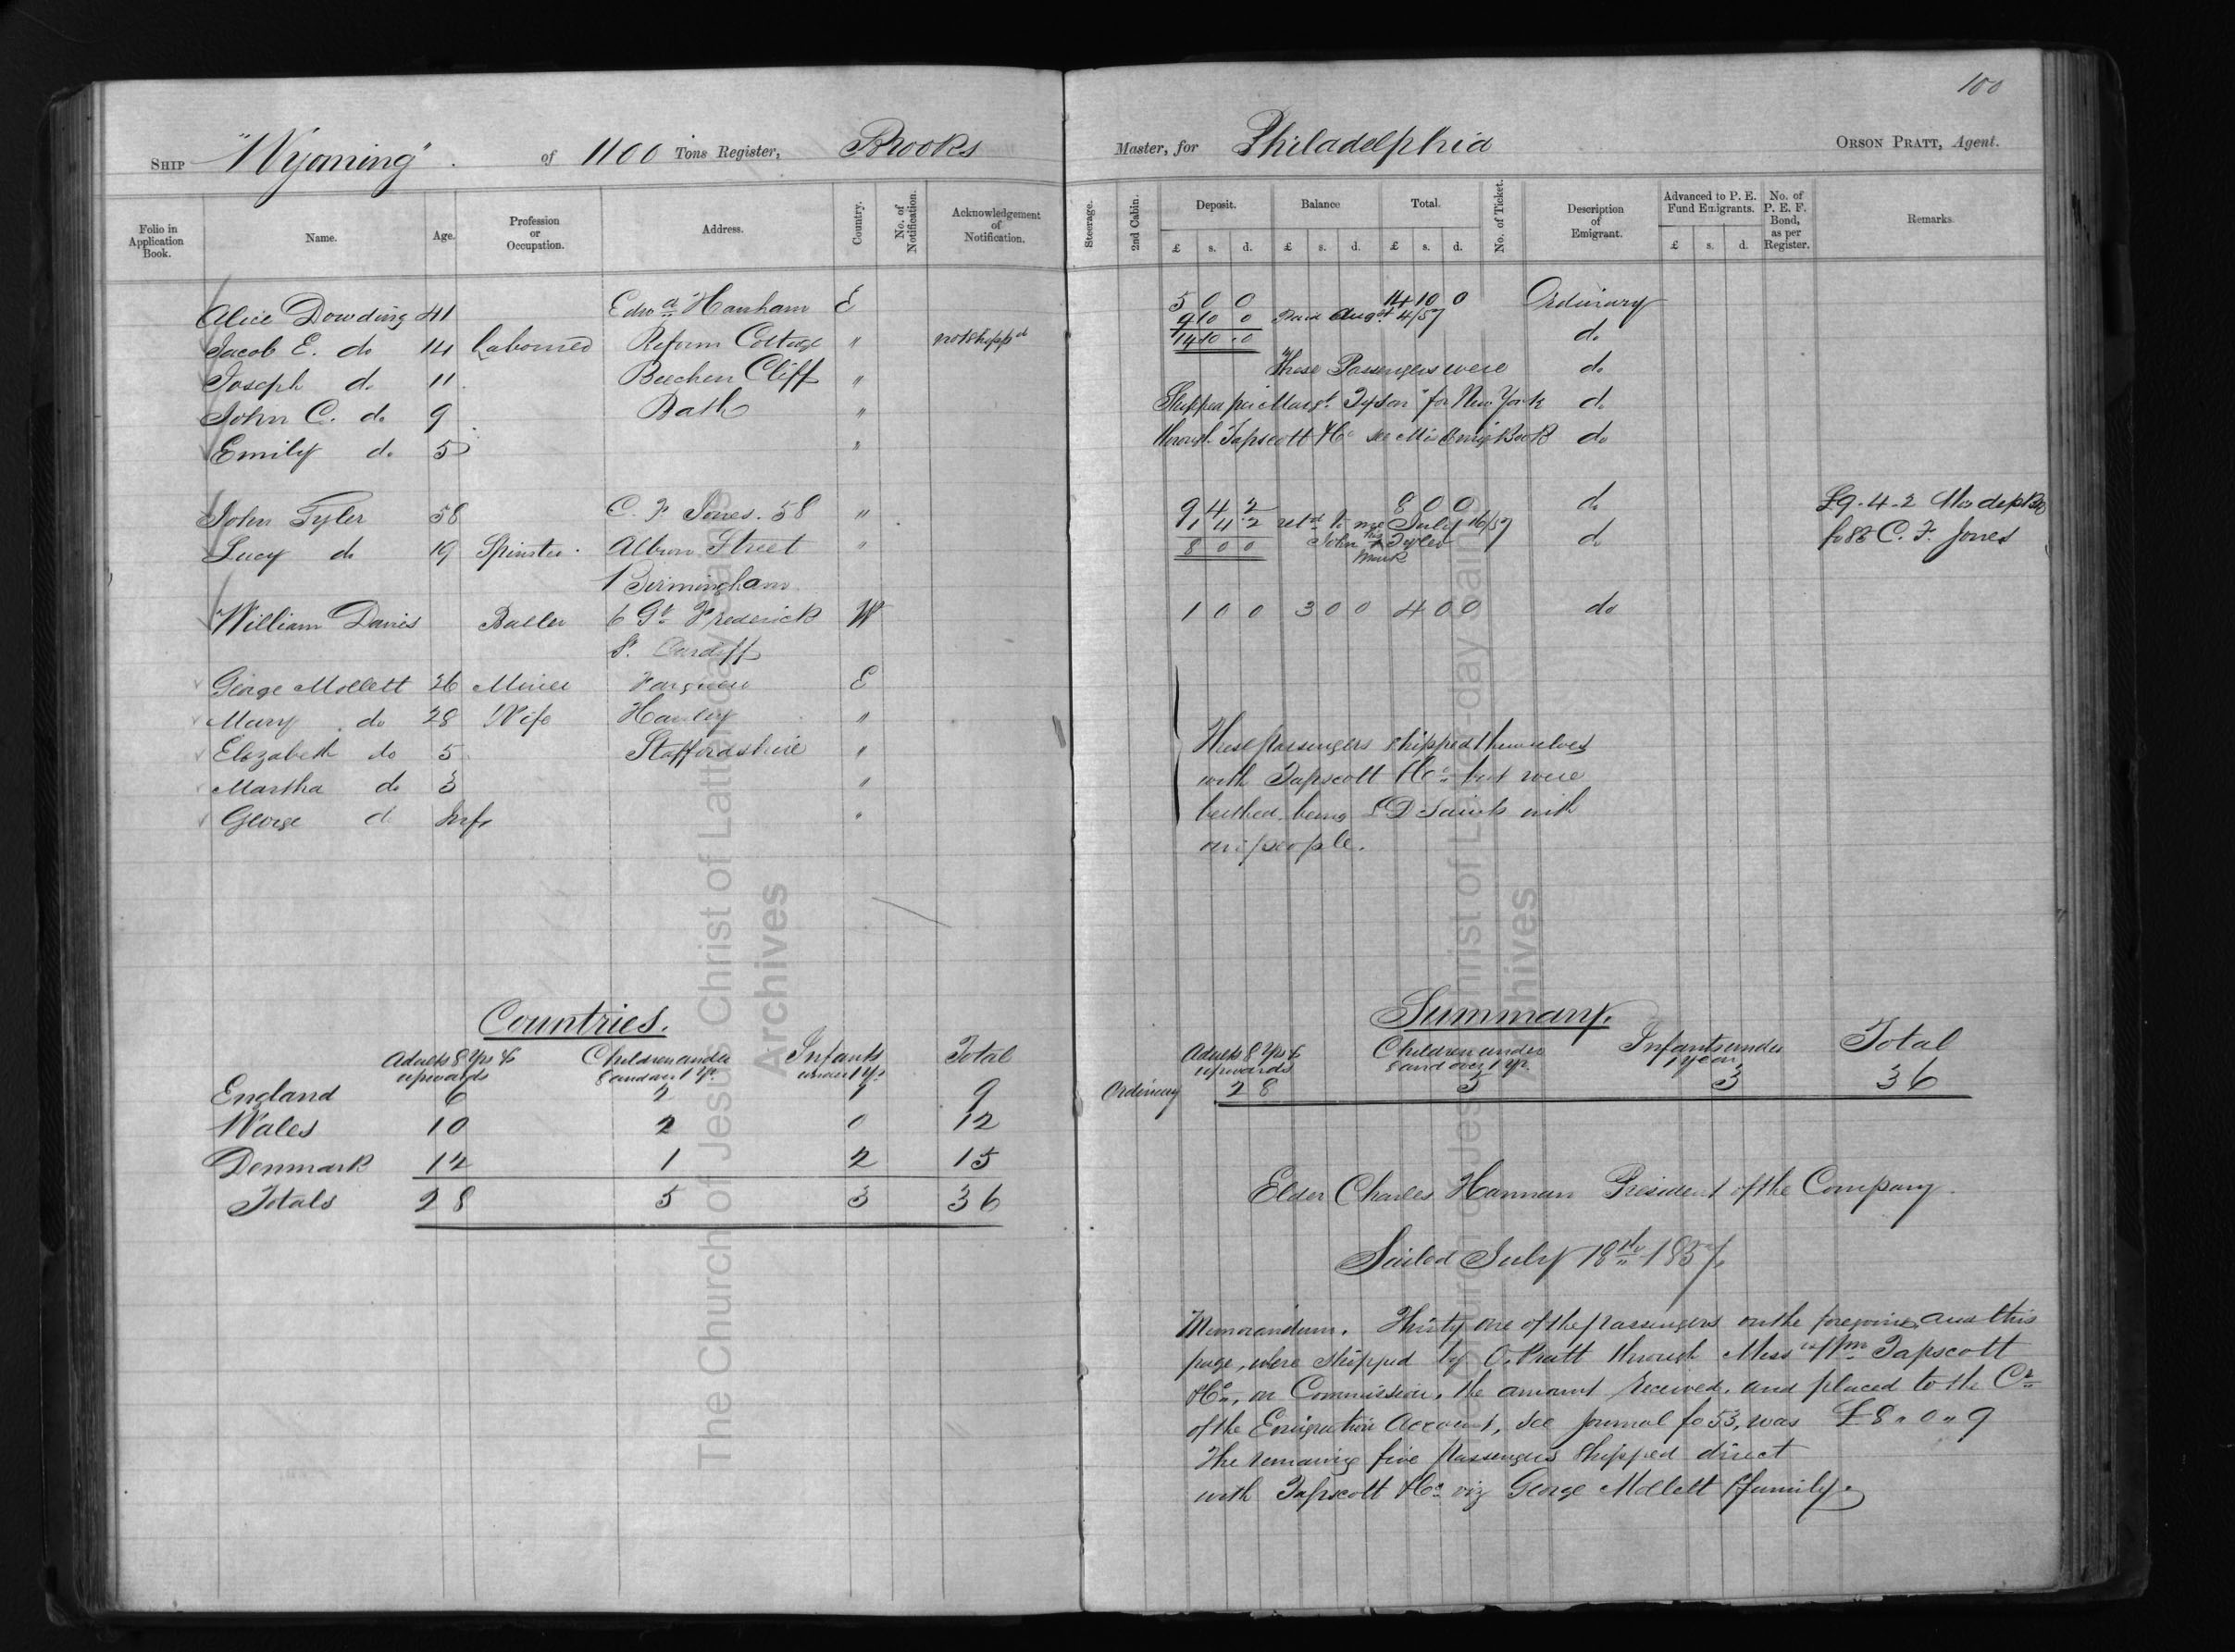 100
Ship "Wyoming" of 1100 Tons Register, Brooks Master, for Philadelphia Orson Pratt, Agent.
Folio in Application Book. Name. Age. Profession or Occupation. Address. Country. No. of Notification. Acknowledgement of Notification. Steerage. 2nd Cabin. Deposit. Balance Total. No. of Ticket. Description of Emigrant. Advanced to P. E. Fund Emigrants. No. of P. E. F. Bond, as per Register. Remarks.
£ s. d. £ s. d. £ s. d. £ s. d.
Alice Dowding 41 Edwd Hanham E 5 0 0 14 10 0 Ordinary
9 10 0 Paid Augst 4/57
Jacob E. do 14 Labourer Reform Cottage " not shippd 14 10 0 do
Joseph do 11 Beechen Cliff " These Passengers were do
John C. do 9 Bath " Shipped per Margt Tyson" for New York do
Emily do 5 " through Tapscott & Co see Mis Emig Book do
John Tyler 58 C. F. Jones. 58 " 9 4 2 8 0 0 do £9.4.2 
1 4 2 retd to me July 16/57
Lucy do 19 Spinster. Albion Street " 8 0 0 John his x mark Tyler do fo 88 C. F. Jones
Birmingham
William Davis 6 Gt Frederick W 1 0 0 3 0 0 4 0 0 do
St. Cardiff
George Mollett 26 Miner E
Mary do 28 Wife Hanley "
Elizabeth do 5 Staffordshire " These passengers shipped themselves
Martha do 3 " with Tapscott & Co but were
George do Inft " berthed being L D Saints with
our people.
Countries.
Adults 8 Yrs & upwards Children under 8 and over 1 Yr. Infants under 1 Yr. Total
England 6 2 1 9
Wales 10 2 0 12
Denmark 12 1 2 15
Totals 28 5 3 36
Summary.
Adults 8 Yrs & upwards Children under 8 and over 1 Yr. Infants under 1 year Total
Ordinary 28 5 3 36
Elder Charles Harman President of the Company.
Sailed July 18th 1857.
Memorandum. Thirty one of the passengers on the foregoing and this
page, were shipped by O. Pratt through Messrs Wm Tapscott
& Co., on Commission, the amount received, and placed to the Cr
of the Emigration Account, see Journal fo 53, was £8 " 0 " 9
The remaining five passengers shipped direct
with Tapscott & Co viz George Mollett & family.
The Church of Jesus Christ of Latter-day Saints
Archives
The Church of Jesus Christ of Latter-day Saints
Archives